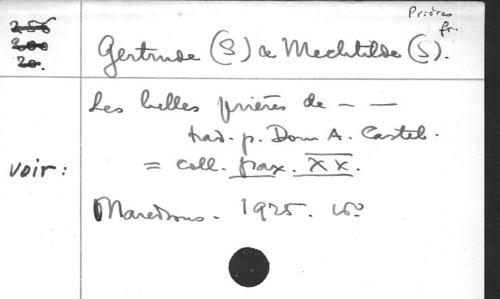 Prières
fr.
256
200
20.
Gertrude (S) & Mechtilde (S).
Les belles prières de — —
trad. p. Dom A. Castel.
voir :
= coll. pax. XX.
Maredsous. 1925. 16°